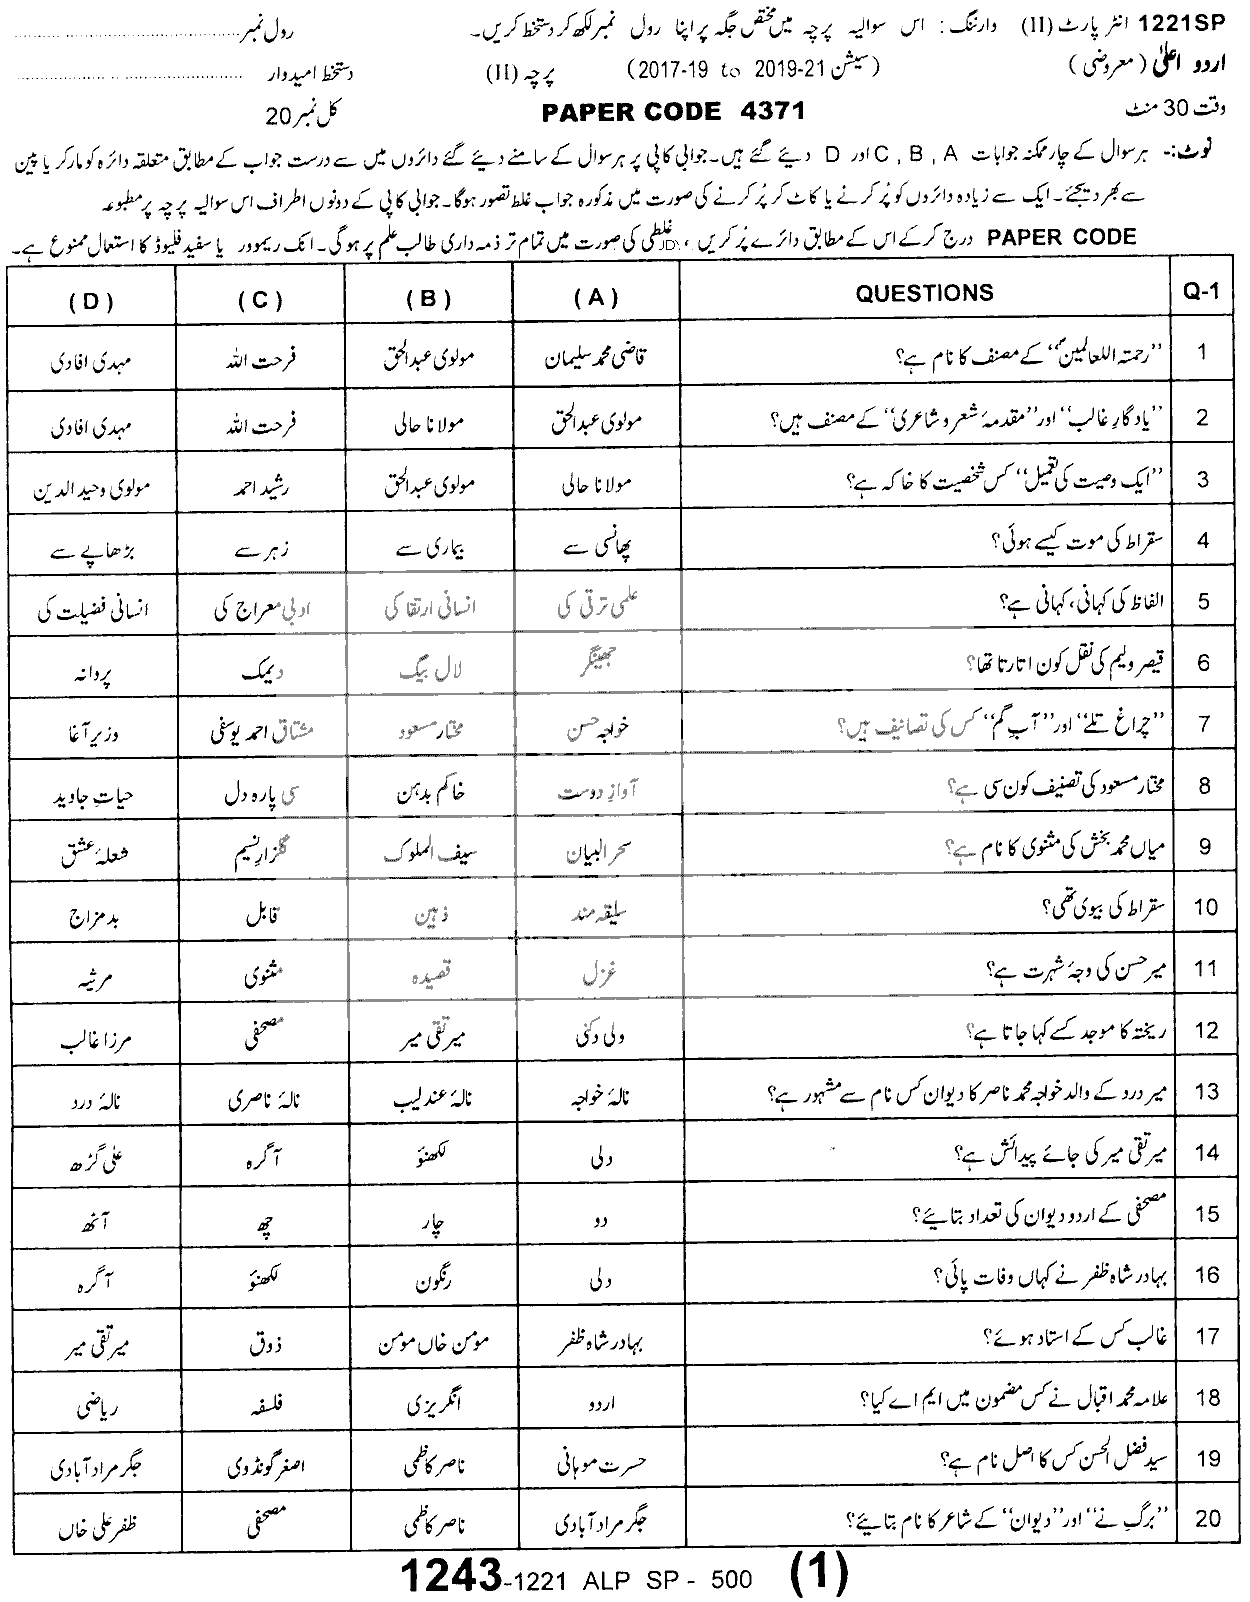 1221SP انٹر پارٹ (II) وارننگ : اس سوالیہ پرچہ میں مختص جگہ پر اپنا رول نمبر لکھ کر دستخط کریں۔ رول نمبر
اردو اعلیٰ (معروضی) (سیشن 2017-19 to 2019-21) پرچہ (II) دستخط امیدوار
وقت 30 منٹ PAPER CODE 4371 کل نمبر 20
نوٹ:- ہر سوال کے چار ممکنہ جوابات A , B , C اور D دیئے گئے ہیں۔ جوابی کاپی پر ہر سوال کے سامنے دیئے گئے دائروں میں سے درست جواب کے مطابق متعلقہ دائرہ کو مارکر یا پین
سے بھر دیجئے۔ ایک سے زیادہ دائروں کو پُر کرنے یا کاٹ کر پُر کرنے کی صورت میں مذکورہ جواب غلط تصور ہوگا۔ جوابی کاپی کے دونوں اطراف اس سوالیہ پرچہ پر مطبوعہ
PAPER CODE درج کرکے اس کے مطابق دائرے پُر کریں، غلطی کی صورت میں تمام تر ذمہ داری طالب علم پر ہوگی۔ انک ریموور یا سفید فلیوڈ کا استعمال ممنوع ہے۔
Q-1 QUESTIONS (A) (B) (C) (D)
1 ''رحمتہ اللعالمینؐ'' کے مصنف کا نام ہے؟ قاضی محمد سلیمان مولوی عبدالحق فرحت اللہ مہدی افادی
2 ''یادگارِ غالب'' اور ''مقدمۂ شعر و شاعری'' کے مصنف ہیں؟ مولوی عبدالحق مولانا حالی فرحت اللہ مہدی افادی
3 ''ایک وصیت کی تعمیل'' کس شخصیت کا خاکہ ہے؟ مولانا حالی مولوی عبدالحق رشید احمد مولوی وحید الدین
4 سقراط کی موت کیسے ہوئی؟ پھانسی سے بیماری سے زہر سے بڑھاپے سے
5 الفاظ کی کہانی، کہانی ہے؟ علمی ترقی کی انسانی ارتقا کی ادبی معراج کی انسانی فضیلت کی
6 قیصر ولیم کی نقل کون اتارتا تھا؟ جھینگر لال بیگ دیمک پروانہ
7 ''چراغ تلے'' اور ''آبِ گم'' کس کی تصانیف ہیں؟ خواجہ حسن مختار مسعود مشتاق احمد یوسفی وزیر آغا
8 مختار مسعود کی تصنیف کون سی ہے؟ آوازِ دوست خاکم بدہن سی پارہ دل حیاتِ جاوید
9 میاں محمد بخش کی مثنوی کا نام ہے؟ سحر البیان سیف الملوک گلزارِ نسیم شعلۂ عشق
10 سقراط کی بیوی تھی؟ سلیقہ مند ذہین قابل بدمزاج
11 میر حسن کی وجۂ شہرت ہے؟ غزل قصیدہ مثنوی مرثیہ
12 ریختہ کا موجد کسے کہا جاتا ہے؟ ولی دکنی میر تقی میر مصحفی مرزا غالب
13 میر درد کے والد خواجہ محمد ناصر کا دیوان کس نام سے مشہور ہے؟ نالۂ خواجہ نالۂ عندلیب نالۂ ناصری نالۂ درد
14 میر تقی میر کی جائے پیدائش ہے؟ دلی لکھنؤ آگرہ علی گڑھ
15 مصحفی کے اردو دیوان کی تعداد بتایئے؟ دو چار چھ آٹھ
16 بہادر شاہ ظفر نے کہاں وفات پائی؟ دلی رنگون لکھنؤ آگرہ
17 غالب کس کے استاد ہوئے؟ بہادر شاہ ظفر مومن خاں مومن ذوق میر تقی میر
18 علامہ محمد اقبال نے کس مضمون میں ایم اے کیا؟ اردو انگریزی فلسفہ ریاضی
19 سید فضل الحسن کس کا اصل نام ہے؟ حسرت موہانی ناصر کاظمی اصغر گونڈوی جگر مراد آبادی
20 ''برگِ نے'' اور ''دیوان'' کے شاعر کا نام بتایئے؟ جگر مراد آبادی ناصر کاظمی مصحفی ظفر علی خاں
1243-1221 ALP SP - 500 (1)